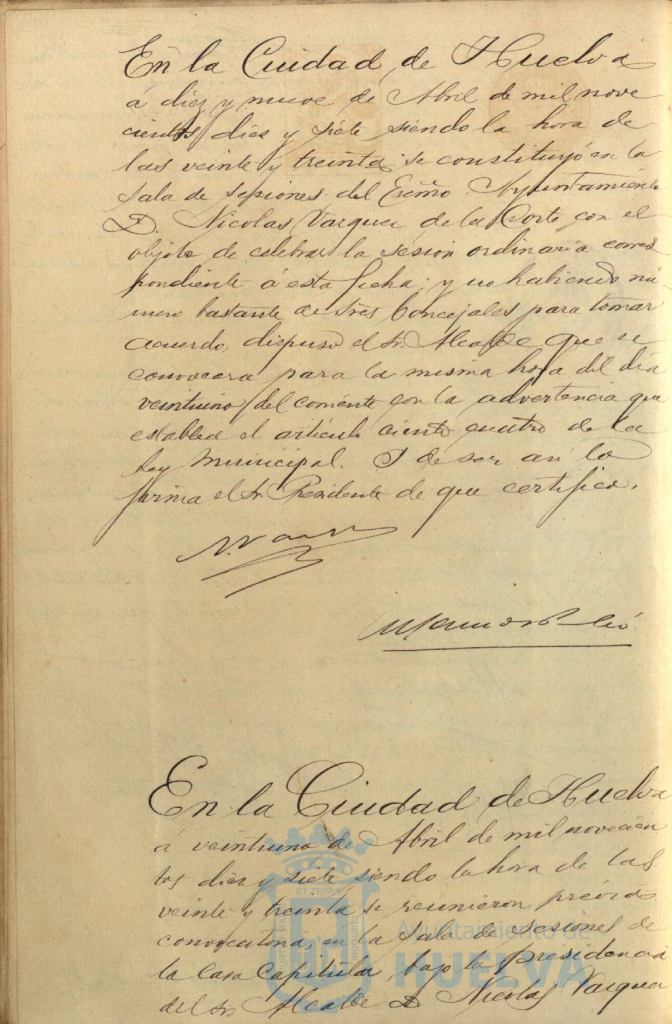 En la Ciudad de Huelva
á diez y nueve de Abril de mil nove
cientos diez y siete siendo la hora de
las veinte y treinta se constituyó en la
Sala de sesiones del Exmo Ayuntamiento
D. Nicolas Vazquez de la Corte con el
objeto de celebrar la sesion ordinaria corres
pondiente á esta fecha; y no habiendo nú
mero bastante de Sres Concejales para tomar
acuerdo, dispuso el Sr. Alcalde que se
convocara para la misma hora del dia
veintiuno del corriente con la advertencia que
establece el artículo ciento cuatro de la
Ley Municipal. Y de ser asi lo
firma el Sr Presidente de que certifico.
En la Ciudad de Huelva
á veintiuno de Abril de mil novecien
tos diez y siete siendo la hora de las
veinte y treinta se reunieron previa
convocatoria, en la Sala de sesiones de
la Casa Capitular, bajo la presidencia
del Sr. Alcalde D. Nicolas Vazquez
Ayuntamiento de
HUELVA